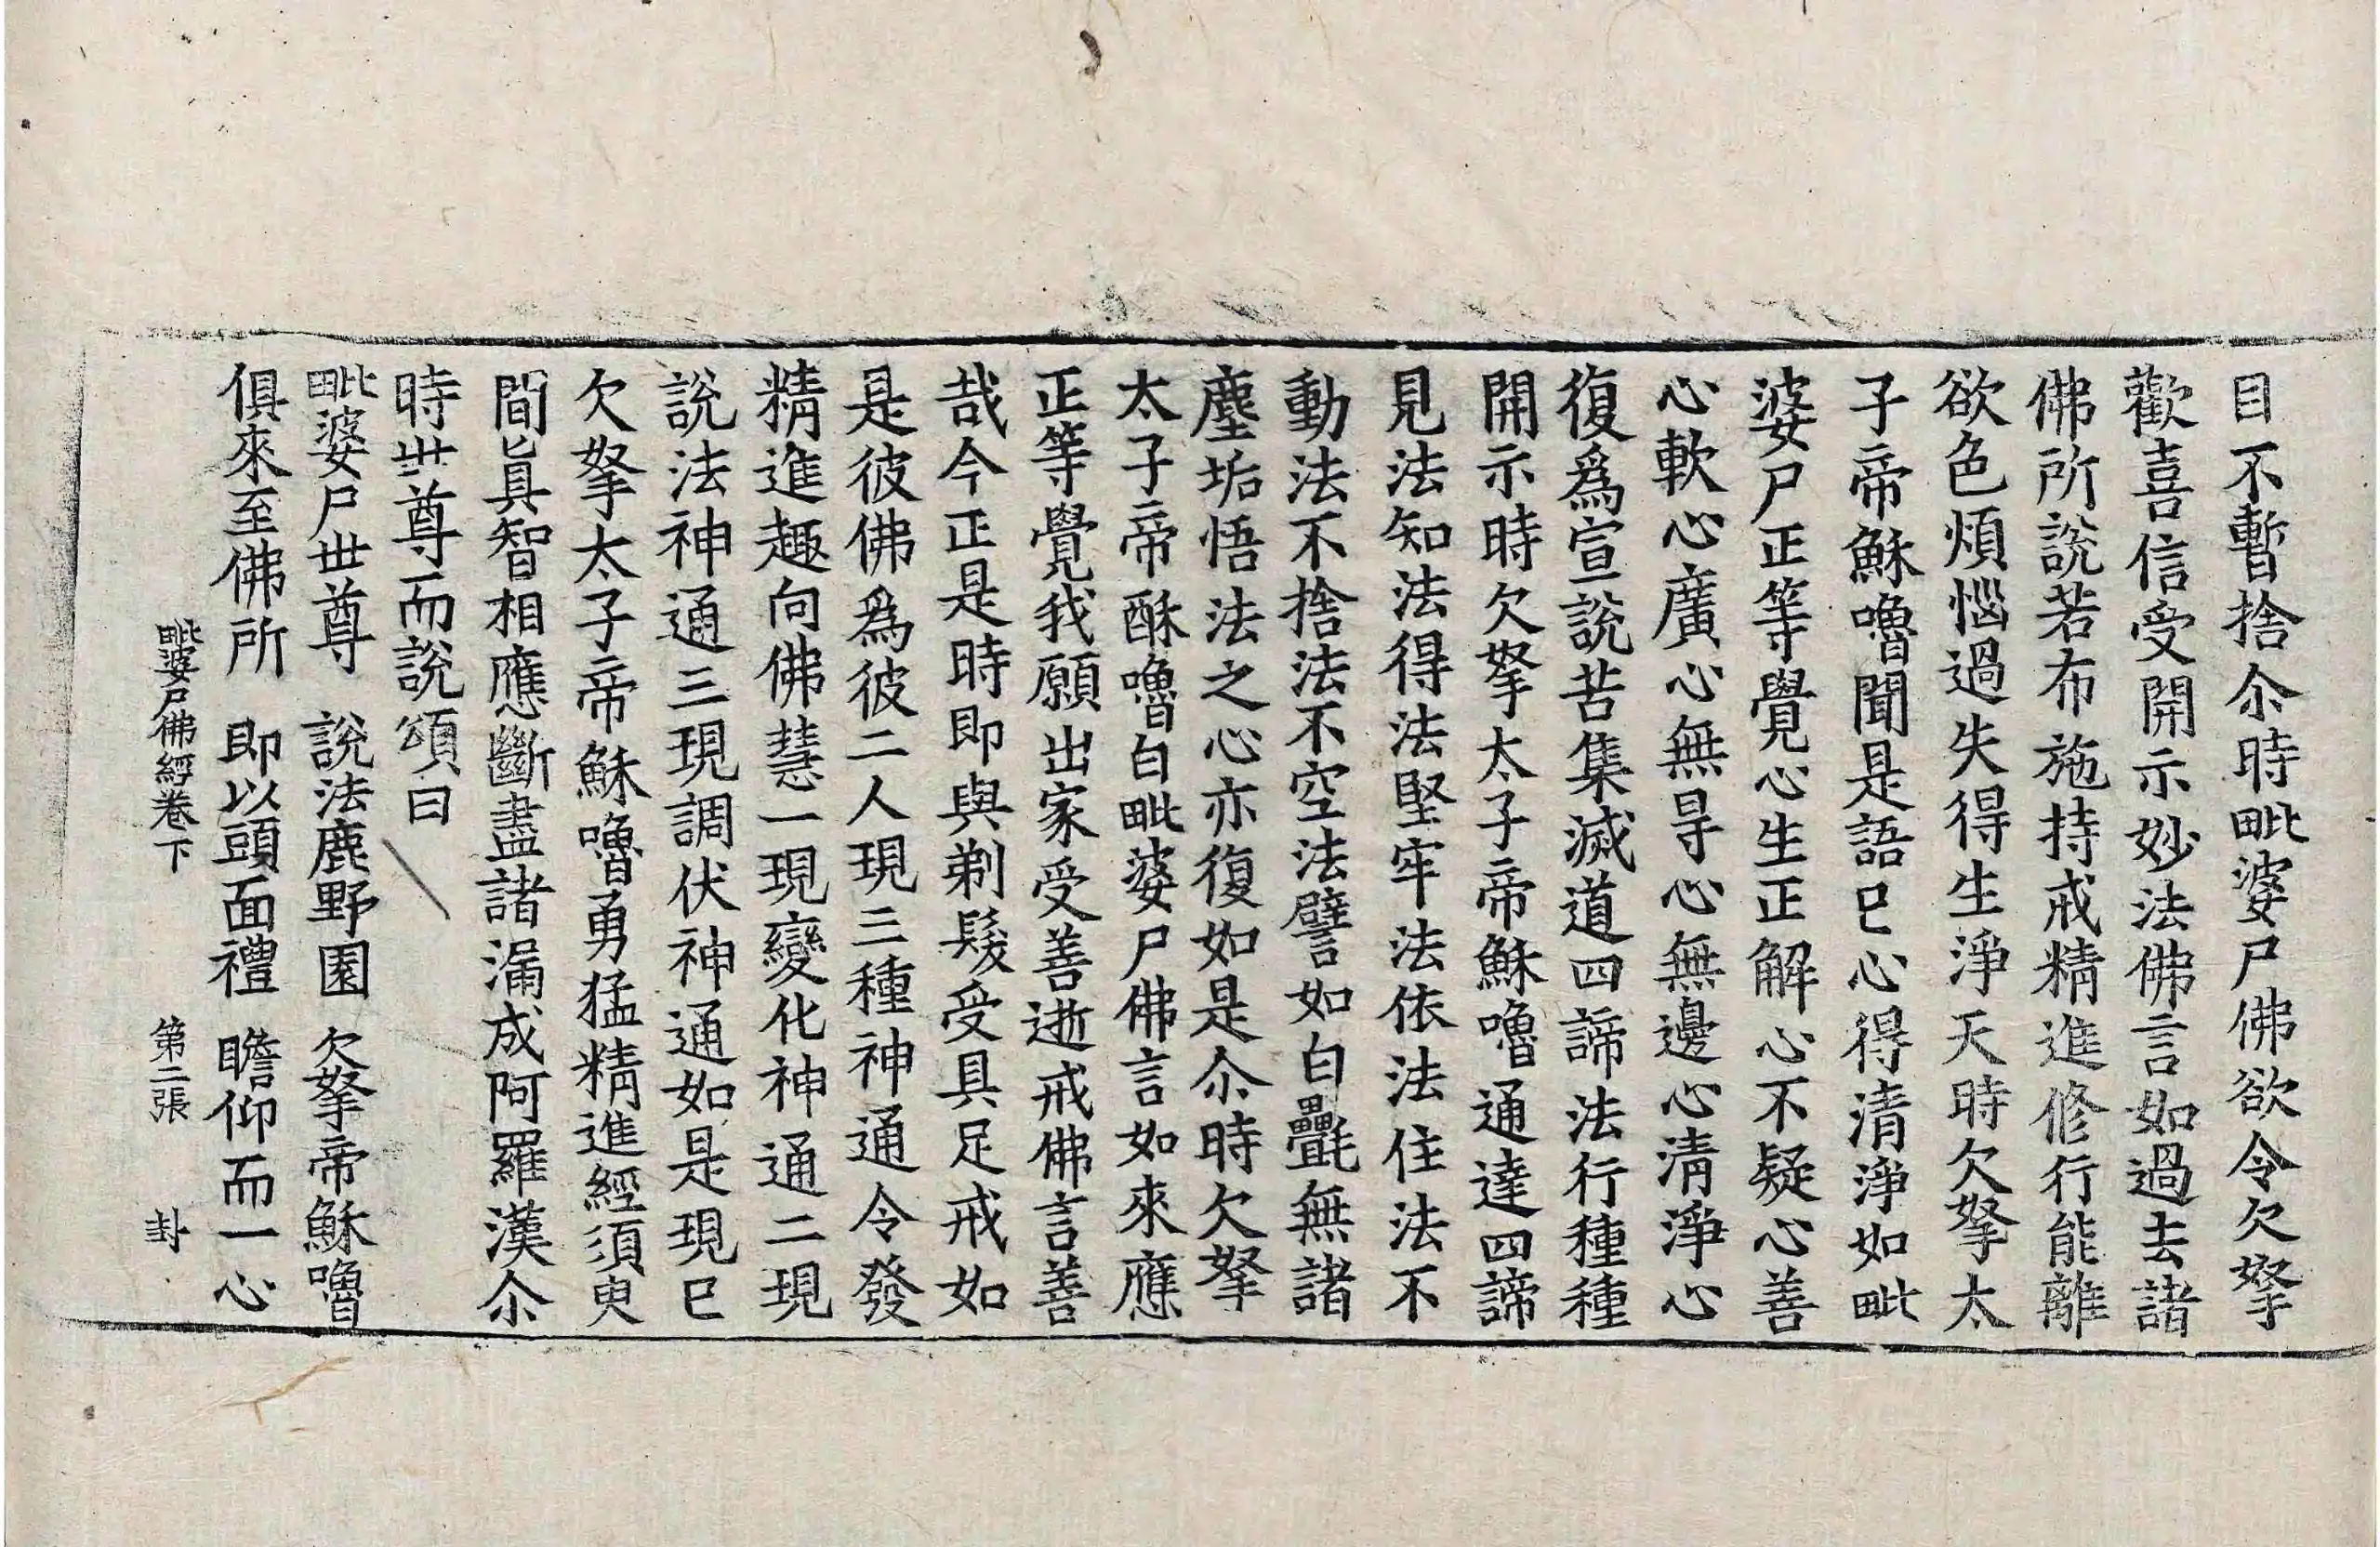 目不暫捨尒時毗婆尸佛欲令欠拏
歡喜信受開示妙法佛言如過去諸
佛所說若布施持戒精進修行能離
欲色煩惱過失得生淨天時欠拏太
子帝穌嚕聞是語已心得清淨如毗
婆尸正等覺心生正解心不疑心善
心軟心廣心無㝵心無邊心清淨心
復爲宣說苦集滅道四諦法行種種
開示時欠拏太子帝穌嚕通達四諦
見法知法得法堅牢法依法住法不
動法不捨法不空法譬如白㲲無諸
塵垢悟法之心亦復如是尒時欠拏
太子帝酥嚕白毗婆尸佛言如來應
正等覺我願出家受善逝戒佛言善
哉今正是時即與剃髮受具足戒如
是彼佛爲彼二人現三種神通令發
精進趣向佛慧一現變化神通二現
說法神通三現調伏神通如是現已
欠拏太子帝穌嚕勇猛精進經須臾
間眞智相應斷盡諸漏成阿羅漢尒
時世尊而說頌曰
毗婆尸世尊　說法鹿野園　欠拏帝穌嚕
俱來至佛所　即以頭面禮　瞻仰而一心
毗婆尸佛經卷下　第二張　封